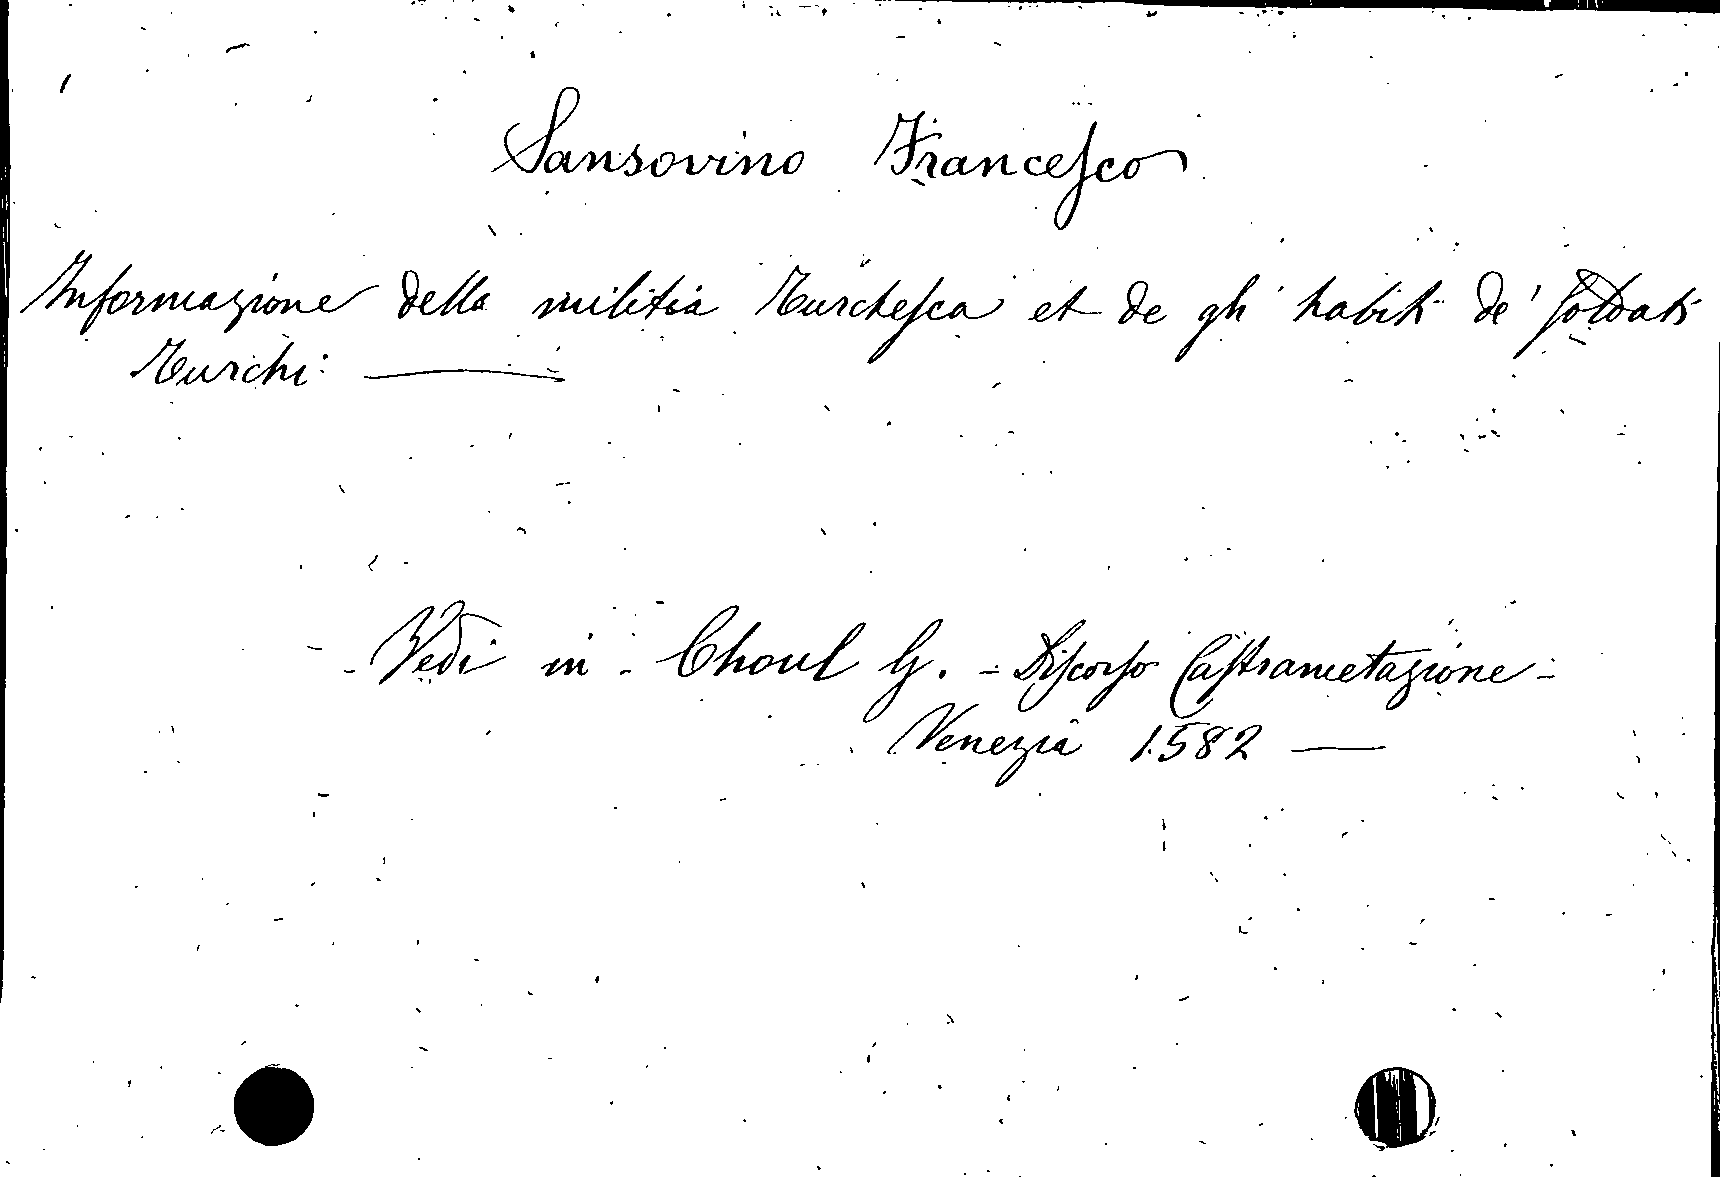 Sansovino Francesco
Informazione della militia Turchesca et de gli habiti de' soldati
Turchi
Vedi in - Choul G. - Discorso Castrametazione -
Venezia 1582